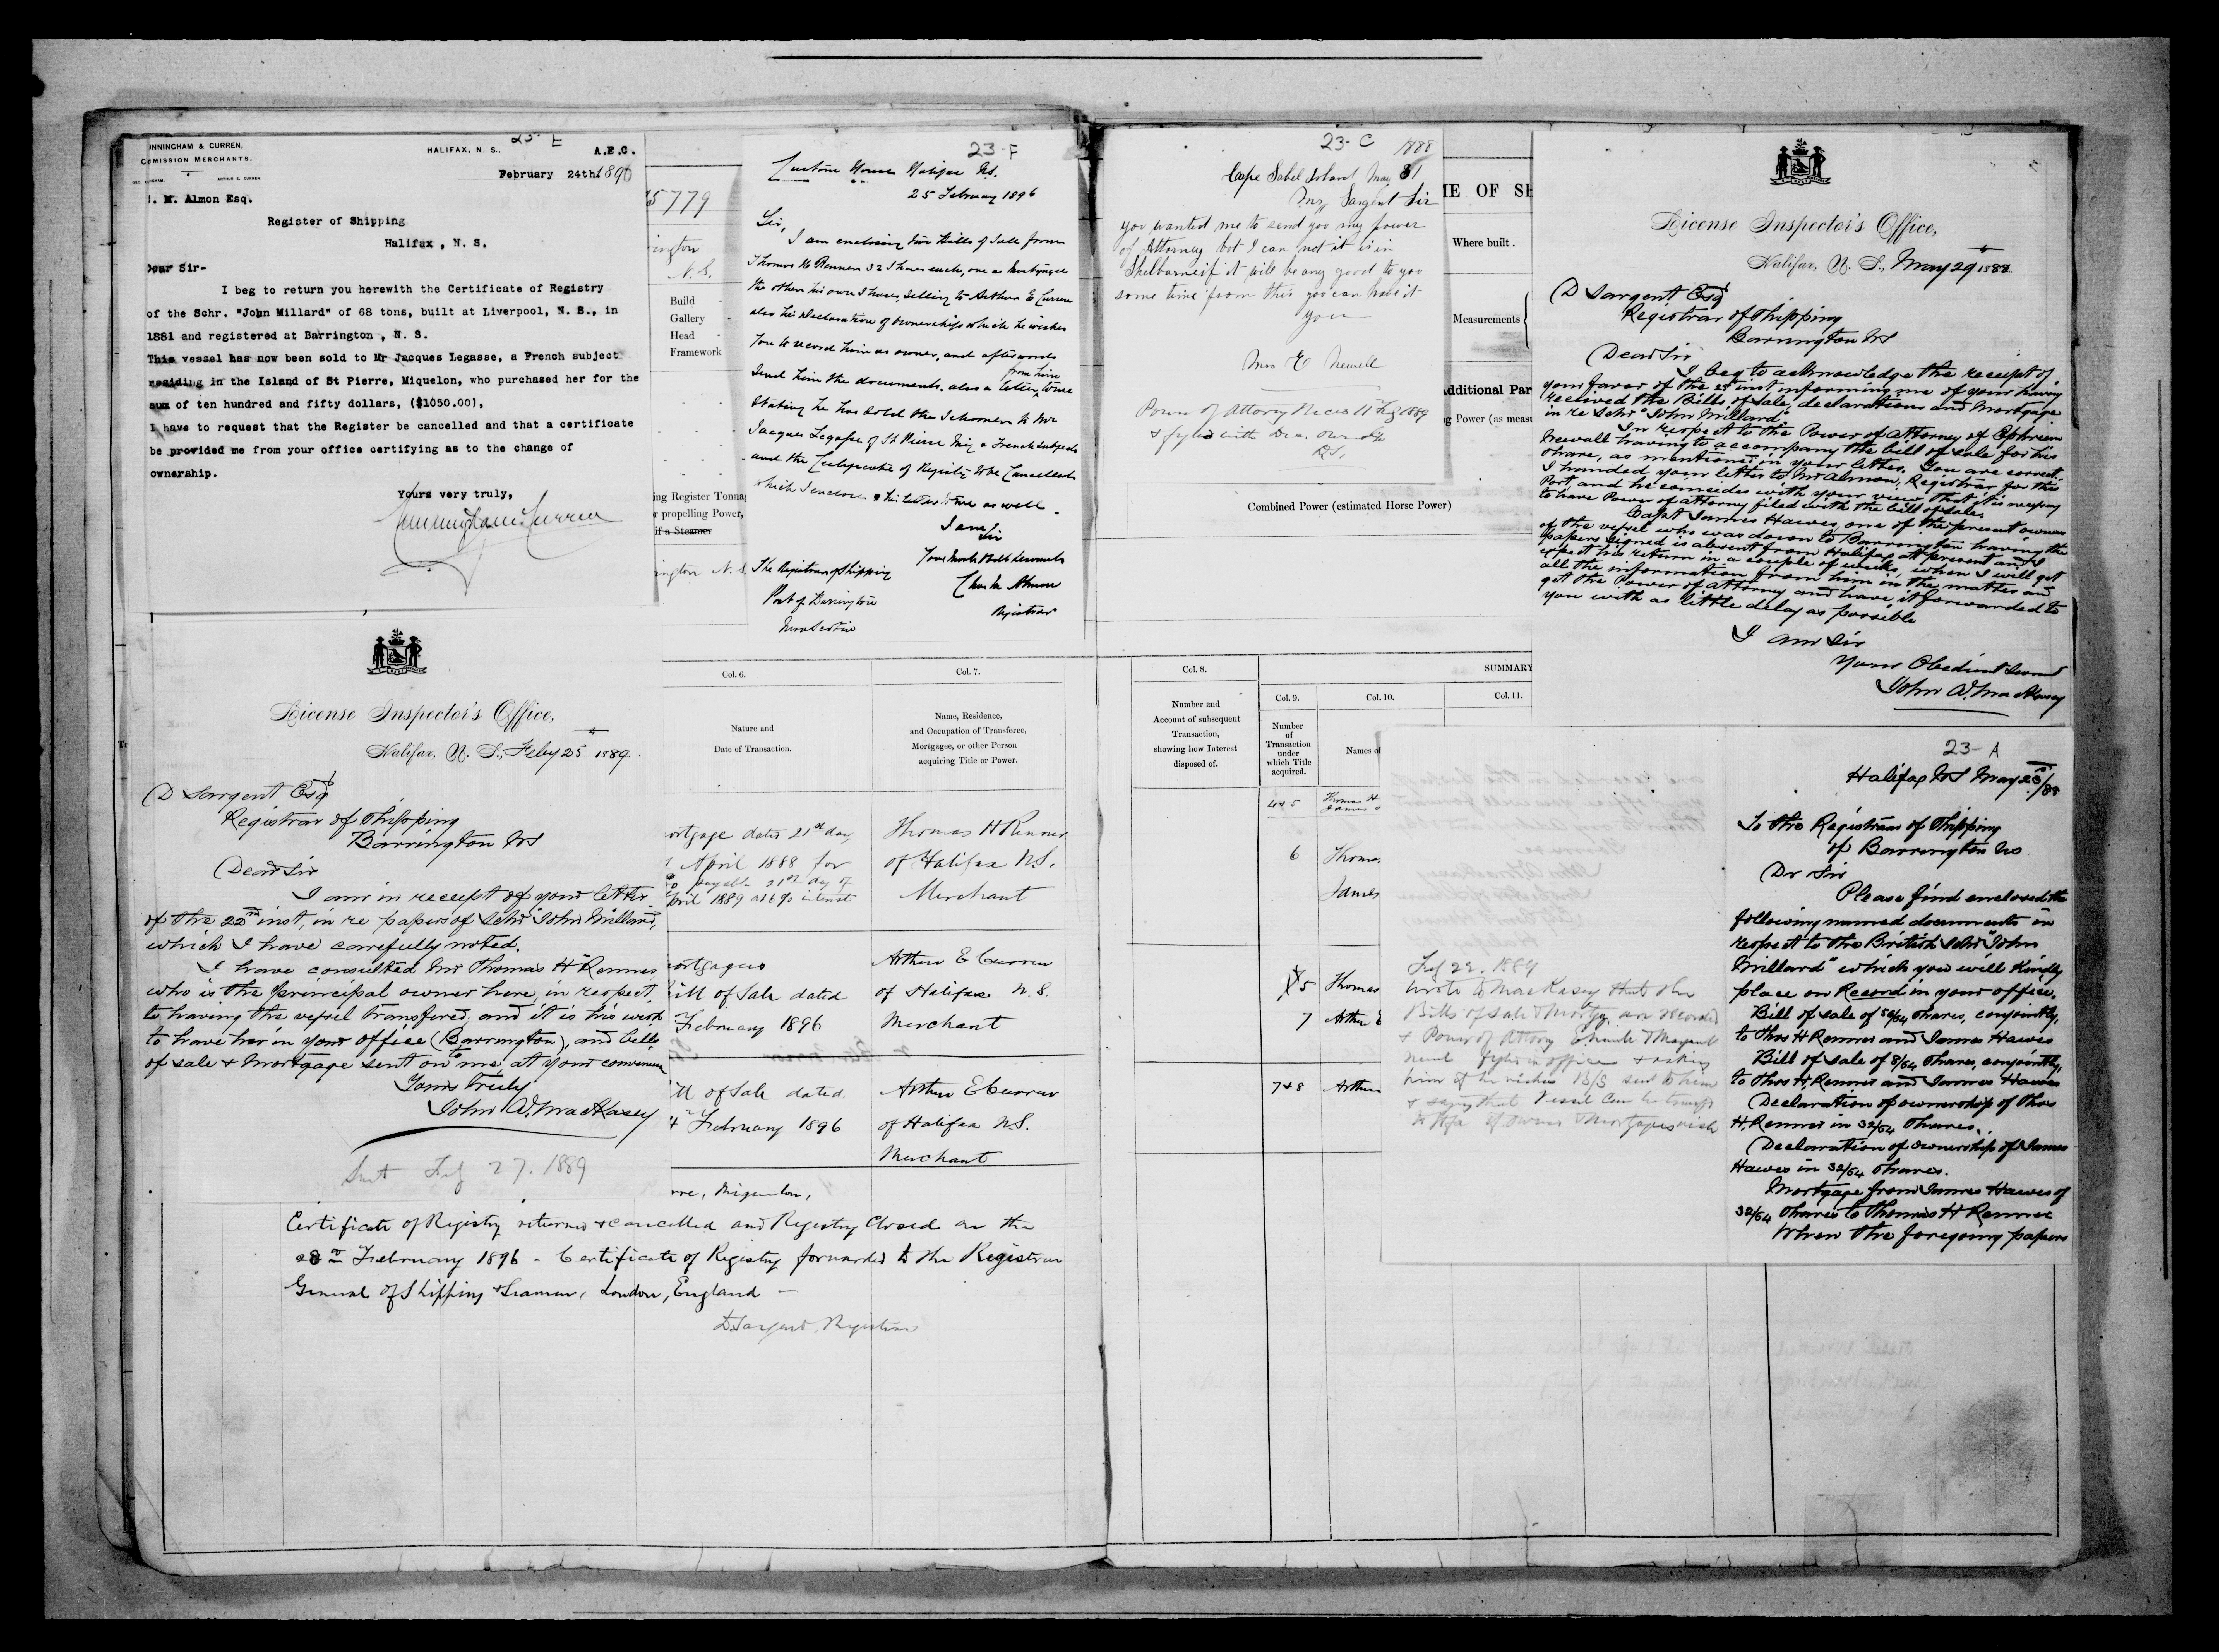 23-E
NNINGHAM & CURREN,
COMISSION MERCHANTS.
HALIFAX, N. S.
A.E.C.
February 24th 1896
. M. Almon Esq.
Register of Shipping
Halifax , N. S.
Dear Sir-
I beg to return you herewith the Certificate of Registry
of the Schr. "John Millard" of 68 tons, built at Liverpool, N. S., in
1881 and registered at Barrington , N. S.
This vessel has now been sold to Mr Jacques Legasse, a French subject
residing in the Island of St Pierre, Miquelon, who purchased her for the
sum of ten hundred and fifty dollars, ($1050.00),
I have to request that the Register be cancelled and that a certificate
be provided me from your office certifying as to the change of
ownership.
Yours very truly,
Cunningham & Curren
5779
ington
N.S.
Build
Gallery
Head
Framework
ing Register Tonnag
r propelling Power,
if a Steamer
ington N.S
23-F
Custom House Halifax NS.
25 February 1896
Sir,
I am enclosing two Bills of Sale from
Thomas H Renner 32 Shares each, one as Mortgagee
the other his own Shares, selling to Arthur E Curren
also his Declaration of Ownership which he wishes
You to record him as owner, and afterwards
Send him the documents. also a letter from him to me
Stating he has sold the Schooner to Mr
Jacques Legasse of St Pierre Miq a French subject
and the Certificate of Registry to be Cancelled
which I enclose & his letter to me as well.
I am
Sir
Your most Obdt Servant
Chas M Almon
Registrar
The Registrar of Shipping
Port of Barrington
Nova Scotia
23-C
1888
Cape Sabel Island May 31
Mr Sargent Sir
you wanted me to send you my power
of Attorney but I can not it is in
Shelburne if it will be any good to you
some time from this you can have it
your
Mrs E Newell
Power of Attorney Recd 11 Feb 1889
& fyled with Dec. Ownership
D.S,
ME OF SH
Where built .
Measurements
Additional Par
g Power (as measu
Combined Power (estimated Horse Power)
License Inspector's Office,
Halifax, N. S., May 29th 1888
D Sargent Esq
Registrar of Shipping
Barrington NS
Dear Sir
I beg to acknowledge the receipt of
your favor of the 25th inst informing me of your having
received the Bills of Sale, declarations and Mortgage
in re Schr "John Millard"
In respect to the Power of Attorney of Ephriem
Newall having to accompany the bill of sale for his
share, as mentioned in your letter. You are correct.
I handed your letter to Mr Almon, Registrar for this
Port, and he coincides with your view, that it is necessary
to have Power of attorney filed with the bill of sale.
Capt James Hawes one of the present owners
of the vessel who was down to Barrington having the
papers signed is absent from Halifax at present and I
expect his return in a couple of weeks, when I will get
all the information from him in the matter and
get the Power of Attorney and have it forwarded to
you with as little delay as possible
I am Sir
Your Obedient Servant
John A. MacKasey
License Inspector's Office,
Halifax, N. S., Feby 25th 1889.
D Sargent Esq
Registrar of Shipping
Barrington NS
Dear Sir
I am in receipt of your letter
of the 22nd inst, in re papers of Schr "John Millard,
which I have carefully noted.
I have consulted Mr Thomas H Renner
who is the principal owner here, in respect
to having the vessel transfered, and it is his wish
to have her in your office (Barrington), and bills
of sale & Mortgage sent on to me at your convenience
Yours truly
John A. MacKasey
Sent Feby 27. 1889
Col. 6.
Col. 7.
Nature and
Date of Transaction.
Name, Residence,
and Occupation of Transferee,
Mortgagee, or other Person
acquiring Title or Power.
ortgage dated 21st day
April 1888 for
payable 21st day of
April 1889 at 6% interest
Thomas H Renner
of Halifax N.S.
Merchant
ortgagee
Bill of Sale dated
February 1896
Arthur E Curren
of Halifax N.S.
Merchant
ll of Sale dated
February 1896
Arthur E Curren
of Halifax N.S.
Merchant
rre, Miquelon,
Certificate of Registry returned & cancelled and Registry Closed on the
28th February 1896 - Certificate of Registry forwarded to the Registrar
General of Shipping & Seamen, London, England
D. Sargent, Registrar
Col. 8.
SUMMARY
Number and
Account of subsequent
Transaction,
showing how Interest
disposed of.
Col. 9.
Col. 10.
Col. 11.
Number
of
Transaction
under
which Title
acquired.
Names of
4&5 Thomas H
James
6 Thomas
James
5 Thomas
7 Arthur E
7&8 Arthur
Feby 22. 1889
Wrote to MacKasey that the
Bills of Sale & Mortg. are recorded
& Power of Attory & Margaret
Newell fyled in office & asking
him if he wishes B/S sent to him
& saying that Vessel can be transfd
to Hfx if owner & Mortgagee wish
23-A
Halifax NS May 23rd/88
To the Registrar of Shipping
of Barrington NS
Dr Sir
Please find enclosed the
following named documents in
respect to the British Schr "John
Millard" which you will kindly
place on Record in your office.
Bill of sale of 56/64 shares, conjointly,
to Thos H Renner and James Hawes
Bill of sale of 8/64 shares, conjointly,
to Thos H Renner and James Hawes
Declaration of ownership of Thos
H. Renner in 32/64 shares.
Declaration of ownership of James
Hawes in 32/64 shares.
Mortgage from James Hawes of
32/64 shares to Thomas H Renner
When the foregoing papers